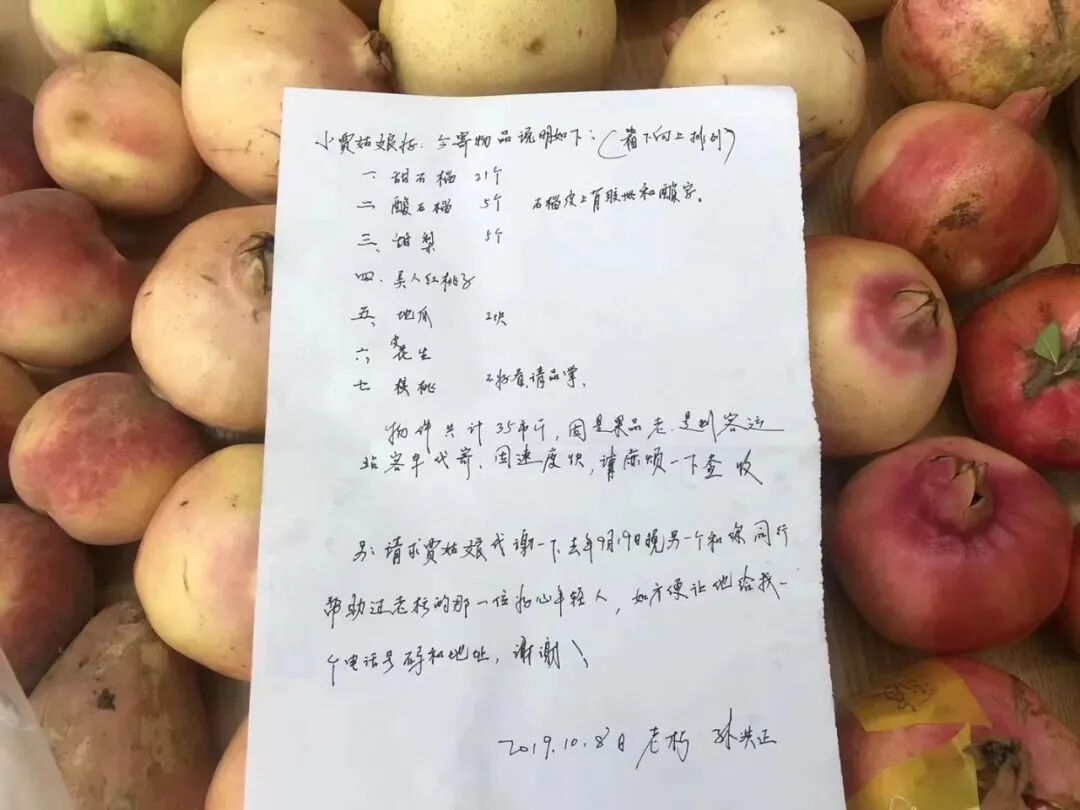 小贾姑娘好：今寄物品说明如下：（箱下向上排列）
一、甜石榴 21个
二、酸石榴 5个 石榴皮上有胶带和酸字。
三、甜梨 5个
四、美人红桃子
五、地瓜 2块
六、花生
七、核桃 不好看请品尝、
物件共计35市斤，因是果品老是到客运
站客车代寄、因速度快，请麻烦一下查收
另：请求贾姑娘代谢一下去年9月19日晚另一个和你同行
帮助过老朽的那一位热心年轻人，如方便让他给我一
个电话号码和地址，谢谢！
2019.10.8日 老朽 孙洪正